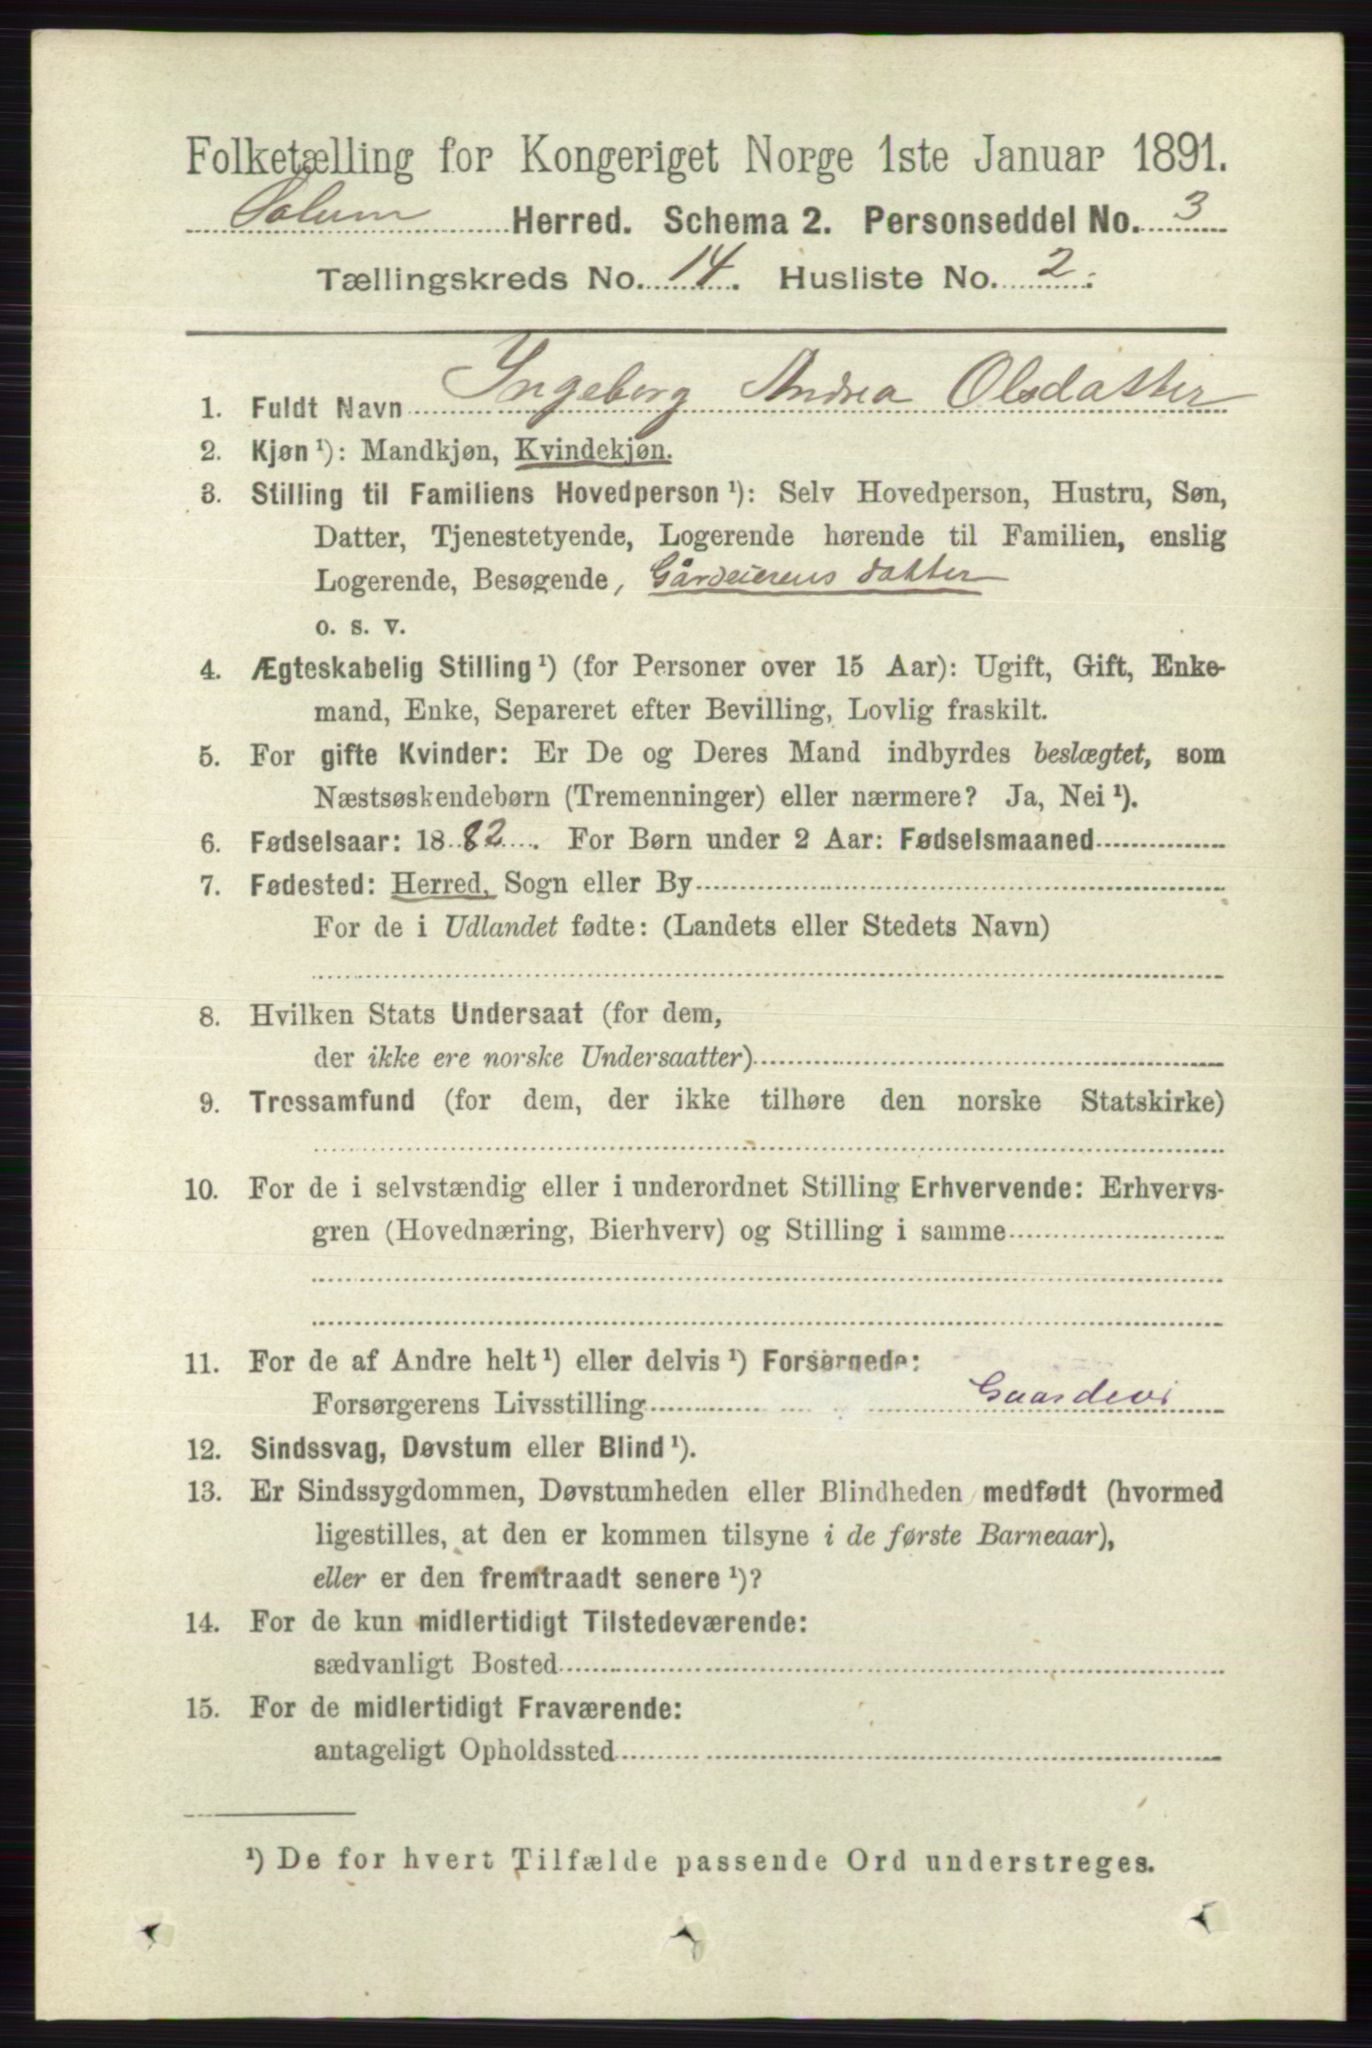 Folketælling for Kongeriget Norge 1ste Januar 1891.
Solum Herred. Schema 2. Personseddel No. 3
Tællingskreds No. 14. Husliste No. 2.
1. Fuldt Navn Ingeborg Andrea Olsdatter
2. Kjøn ¹): Mandkjøn, Kvindekjøn.
3. Stilling til Familiens Hovedperson ¹): Selv Hovedperson, Hustru, Søn,
Datter, Tjenestetyende, Logerende hørende til Familien, enslig
Logerende, Besøgende, Gårdeierens datter
o. s. v.
4. Ægteskabelig Stilling ¹) (for Personer over 15 Aar): Ugift, Gift, Enke-
mand, Enke, Separeret efter Bevilling, Lovlig fraskilt.
5. For gifte Kvinder: Er De og Deres Mand indbyrdes beslægtet, som
Næstsøskendebørn (Tremenninger) eller nærmere? Ja, Nei ¹).
6. Fødselsaar: 1882. For Børn under 2 Aar: Fødselsmaaned
7. Fødested: Herred, Sogn eller By
For de i Udlandet fødte: (Landets eller Stedets Navn)
8. Hvilken Stats Undersaat (for dem,
der ikke ere norske Undersaatter)
9. Trossamfund (for dem, der ikke tilhøre den norske Statskirke)
10. For de i selvstændig eller i underordnet Stilling Erhvervende: Erhvervs-
gren (Hovednæring, Bierhverv) og Stilling i samme
11. For de af Andre helt ¹) eller delvis ¹) Forsørgede:
Forsørgerens Livsstilling Gaardevi
12. Sindssvag, Døvstum eller Blind ¹).
13. Er Sindssygdommen, Døvstumheden eller Blindheden medfødt (hvormed
ligestilles, at den er kommen tilsyne i de første Barneaar),
eller er den fremtraadt senere ¹)?
14. For de kun midlertidigt Tilstedeværende:
sædvanligt Bosted
15. For de midlertidigt Fraværende:
antageligt Opholdssted
¹) De for hvert Tilfælde passende Ord understreges.